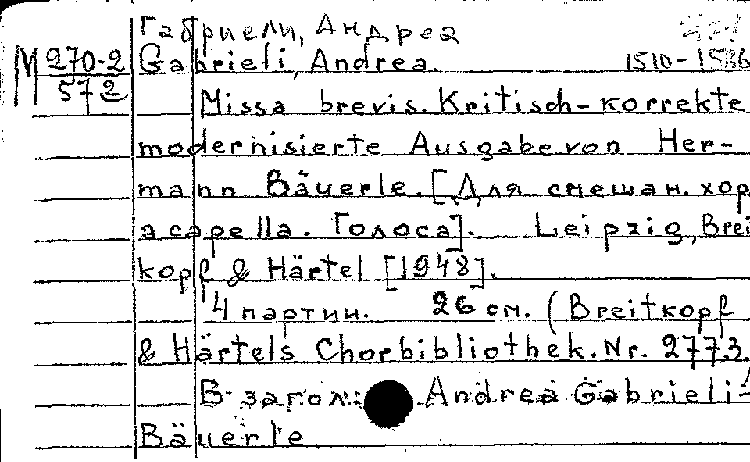 Габриели, Андреа
М 270-2 Gabrieli, Andrea. 1510-1586
572
Missa brevis. Kritisch-korrekte
modernisierte Ausgabe von Her-
mann Bäuerle. [Для смешан. хор
a capella. Голоса]. Leipzig, Brei
kopf & Härtel [1948].
4 партии. 26 см. (Breitkopf
& Härtels Chorbibliothek. Nr. 2773.
В загол.: Andrea Gabrieli-
Bäuerle